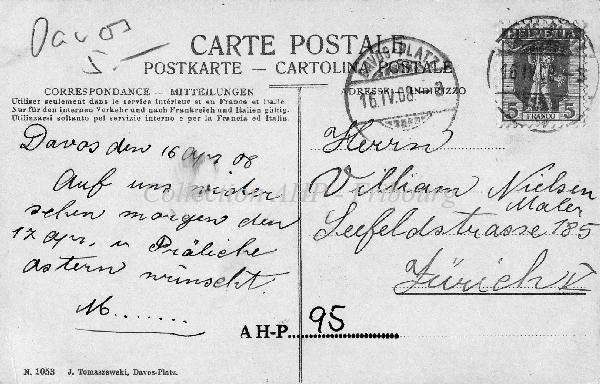 Davos
5.—
CARTE POSTALE
POSTKARTE — CARTOLINA POSTALE
CORRESPONDANCE — MITTEILUNGEN
ADRESSE — INDIRIZZO
Utiliser seulement dans le service intérieur et en France et Italie.
Nur für den internen Verkehr und nach Frankreich und Italien giltig.
Utilizzarsi soltanto pel servizio interno e per la Francia ed Italia.
DAVOS-PLATZ
16.IV.08.
HELVETIA
5 5
FRANCO
16.IV.08
Davos den 16 Apr 08
Auf uns wider
sehen morgen den
17 Apr. u Präliche
astern wünscht.
M.......
Herrn
William Nielsen
Maler
Seefeldstrasse 185
Zürich V
Collection AHP - Fribourg
AH-P 95
N. 1053 J. Tomaszewski, Davos-Platz.